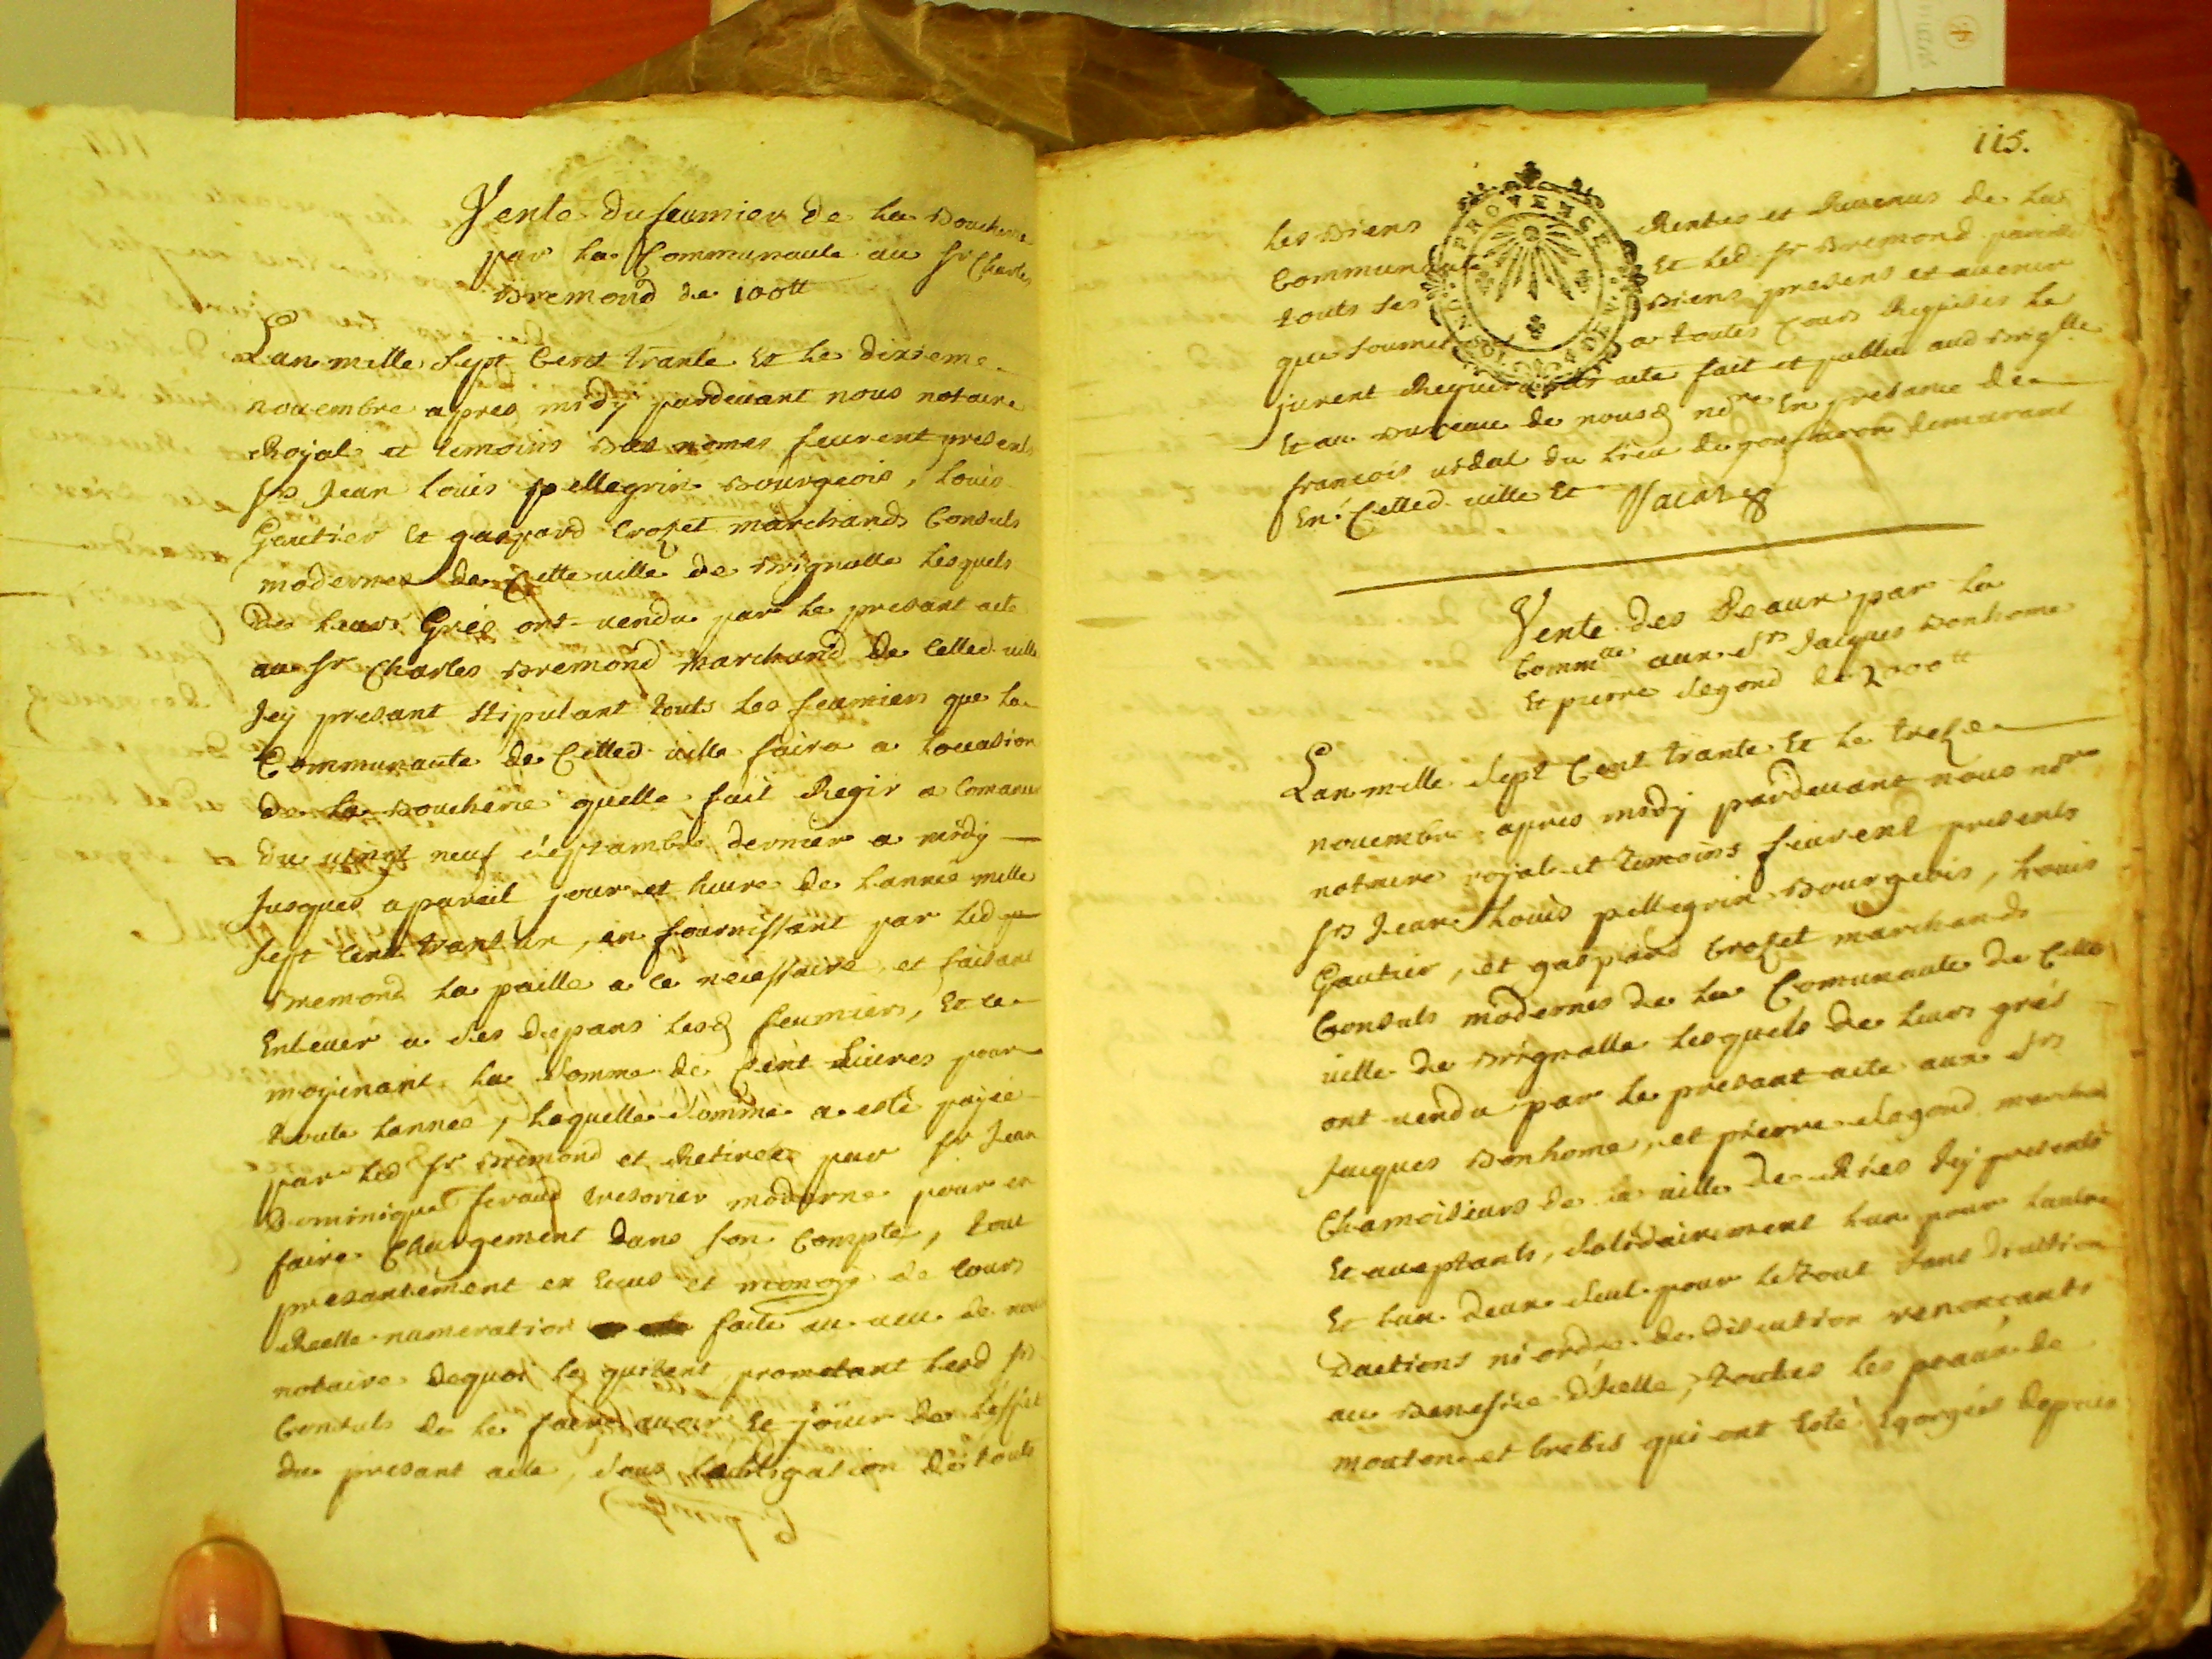 Vente du feumier de la Boucherie
par la Communaute au Sr Charles
Bremond de 100tt
Lan mille sept Cent trante Et le dixieme
novembre apres midy pardevant nous notaire
Royal et temoins Bas nomes feurent presents
Srs Jean Louis pellegrin Bourgeois, Louis
Gautier Et gaspard Crozet marchands Consuls
modernes de Cette ville de Brignolle lesquels
De leurs Grés ont vendu par le presant acte
au Sr Charles Bremond marchand de Cetted. ville
Jcy presant stipulant touts les feumiers que la
Communaute de Cetted. ville faira a loccasion
de la Boucherie quelle fait Regir a Comancer
du vingt neuf septambre dernier a midy
Jusques a pareil jour et heure de lannée mille
sept Cent trant'un, en fournissant par led. Sr
Bremond la paille a ce necessaire, et faisant
Enlever a ses depans lesd. feumiers, Et ce
moyenant la somme de Cent Livres pour
toute lannee, laquelle somme a esté payée
par led Sr Bremond et Retirée par Sr Jean
Dominique feraud tresorier moderne pour en
faire Chargement dans son Compte, tout
presantement en Ecus et monoye de Cours
Reelle numeration faite au veu de nous
notaire dequoi le quitent prometant lesd Srs
Consuls de le faire avoir Et joüir de leffet
du presant acte, sous lobligation de touts
115.
les Biens Rentes et Revenus de lad
Communaute Et led. Sr Bremond pareille
touts ses Biens presens et avenir
que soumet a toutes Cours Requises le
jurent Requerants acte fait et publié aud Brig.lle
Et au Bureau de nousd no.re En presance de
francois vidal du lieu de gonfaron demurant
En Cetted. ville Et
Vente des Peaux par la
Comm.te aux Srs Jacques Bonhome
Et pierre segond de 2000tt
Lan mille sept Cent trante Et le treze
novembre apres midy pardevant nous no.re
notaire royal et temoins feurent presents
Srs Jean Louis pellegrin Bourgeois, Louis
Gautier, et gaspard Crozet marchands
Consuls modernes de la Comunaute de Cette
ville de Brignolle lesquels de leurs grés
ont vendu par le presant acte aux Srs
Jacques Bonhome, et pierre segond marchands
Chamoiseurs de la ville de Riés Jcy presents
Et acceptants, solidairement lun pour lautre
Et lun deux seul pour le tout sans division
Dactions ni ordre de discution renonçants
au Benefice dicelle, toutes les peaux de
mouton et brebis qui ont esté Egorgées depuis